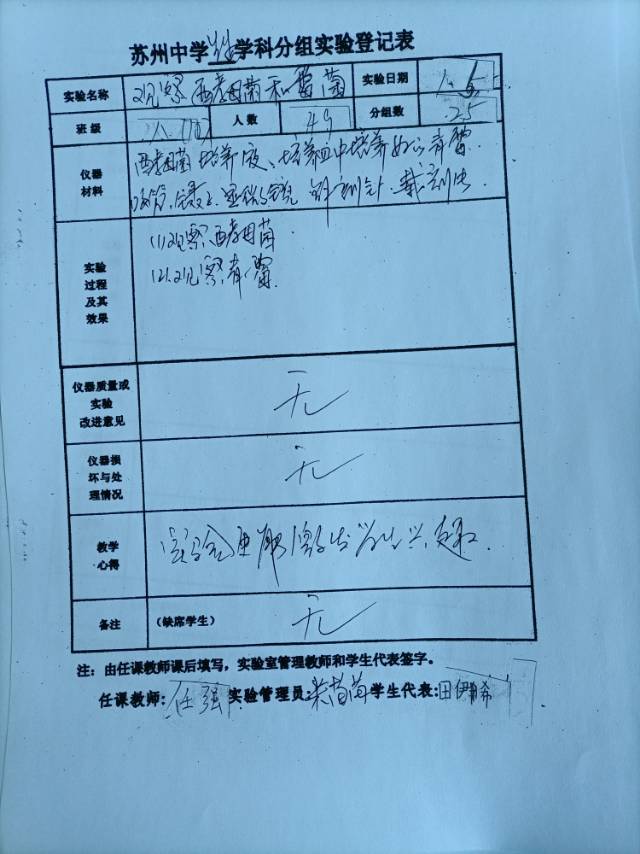 苏州中学生物学科分组实验登记表
实验名称 观察酵母菌和青霉菌 实验日期
班级 人数 49 分组数 25
仪器材料 酵母菌培养液、培养皿中培养好的青霉、
吸管、显微镜、解剖针、载玻片
实验过程及其效果 (1)观察酵母菌
(2)观察青霉
仪器质量或实验改进意见 无
仪器损坏与处理情况 无
教学心得 实验更能激发学生兴趣.
备注 (缺席学生) 无
注：由任课教师课后填写，实验室管理教师和学生代表签字。
任课教师：任强 实验管理员： 学生代表：田伊希